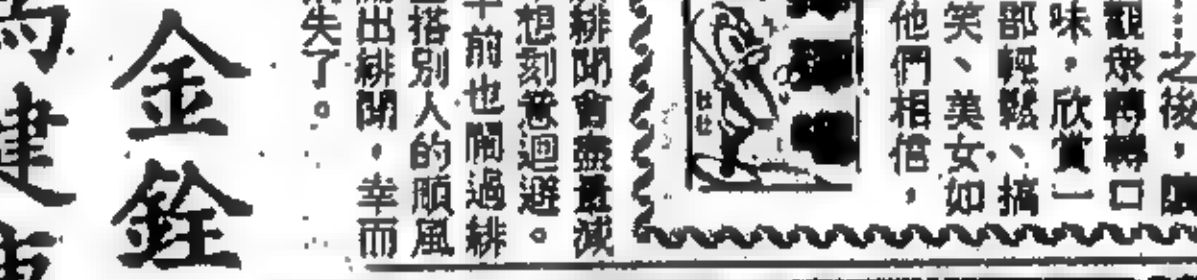 之後，
觀眾轉轉口
味，欣賞一
部輕鬆、搞
笑、美女如
他們相信，
緋聞會無
想刻意迴避。
年前也鬧過緋
搭別人的順風
出緋聞，幸而
失了。
金銓
建